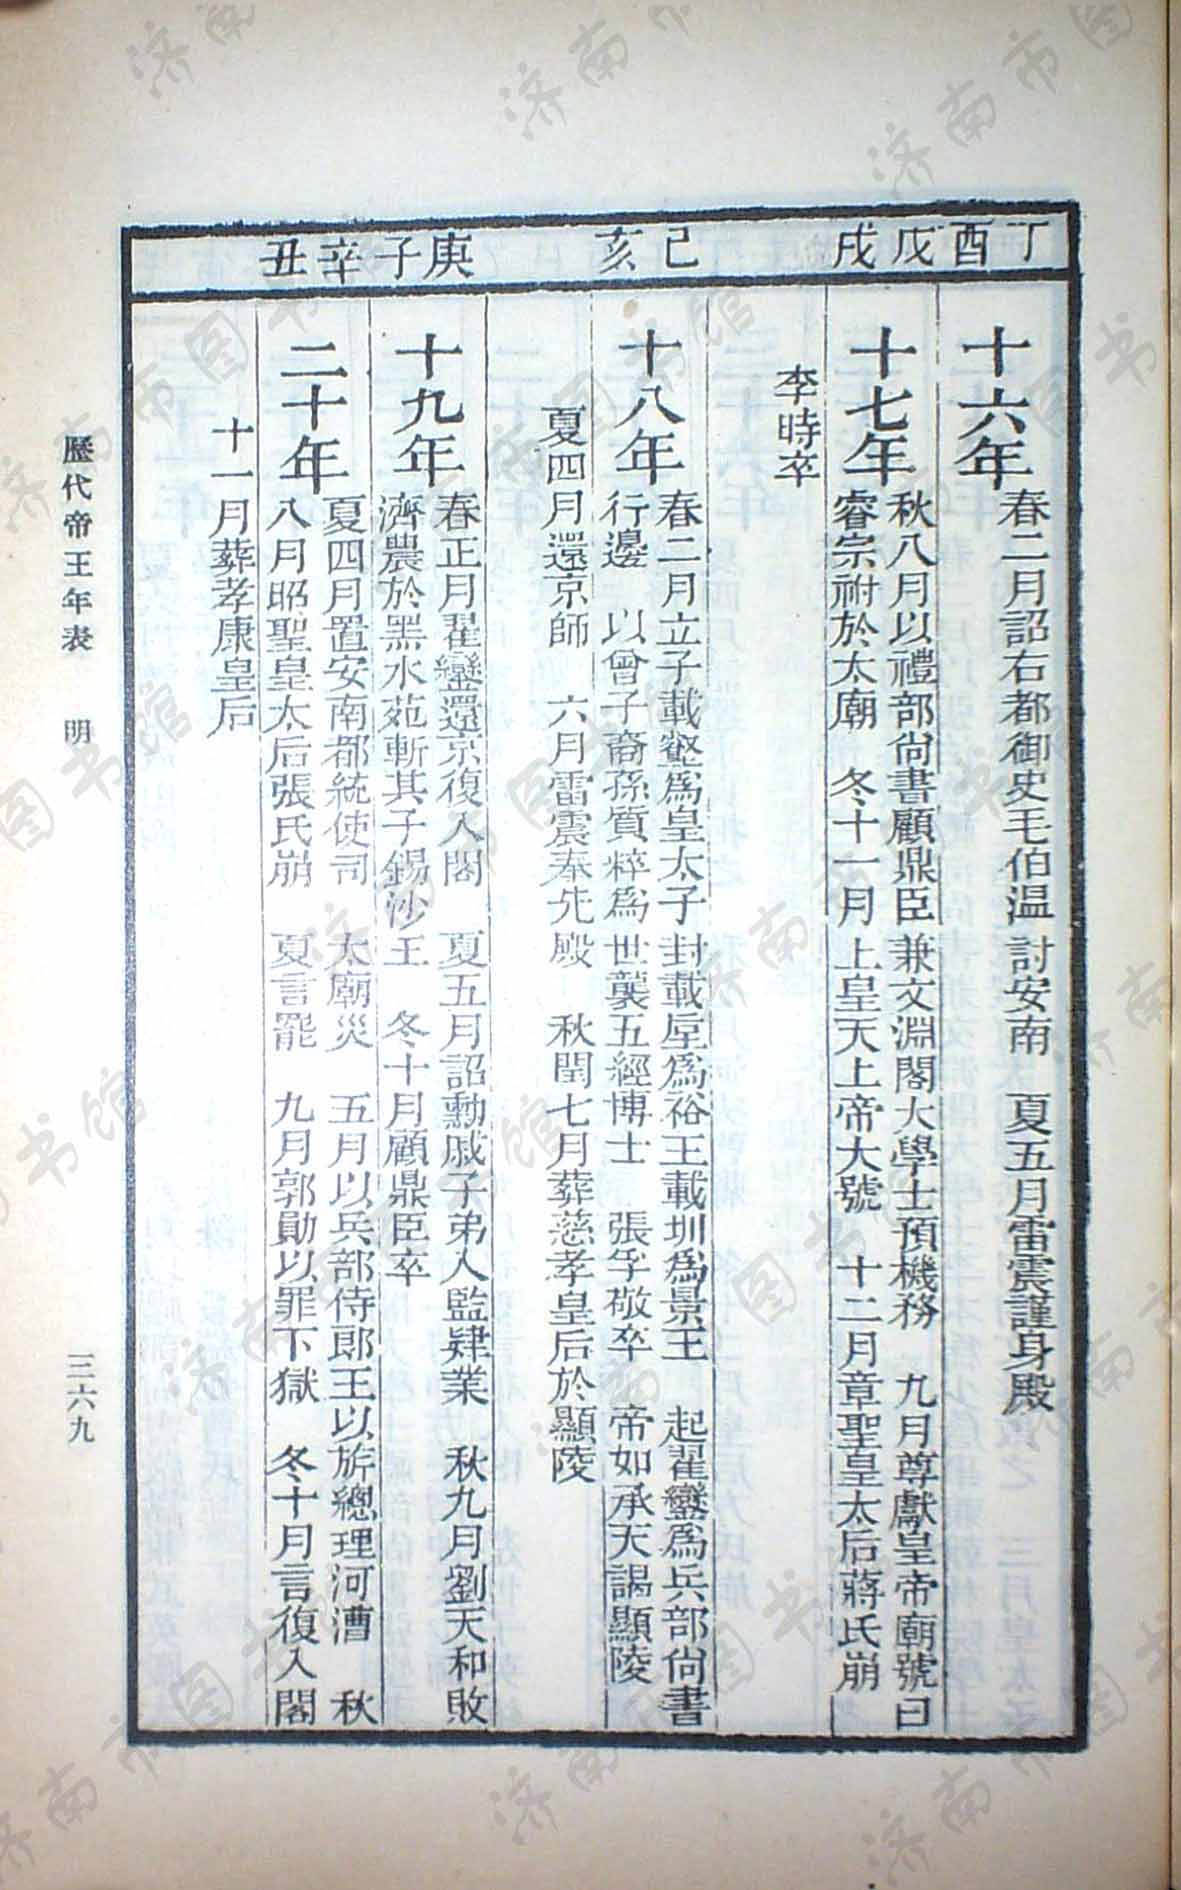 丁酉
十六年
春二月詔右都御史毛伯温討安南　夏五月雷震謹身殿
戊戌
十七年
秋八月以禮部尙書顧鼎臣兼文淵閣大學士預機務　九月尊獻皇帝廟號曰
睿宗祔於太廟　冬十一月上皇天上帝大號　十二月章聖皇太后蔣氏崩
李時卒
己亥
十八年
春二月立子載壑爲皇太子封載垕爲裕王載圳爲景王　起翟鑾爲兵部尙書
行邊　以曾子裔孫質粹爲世襲五經博士　張孚敬卒　帝如承天謁顯陵
夏四月還京師　六月雷震奉先殿　秋閏七月葬慈孝皇后於顯陵
庚子
十九年
春正月翟鑾還京復入閣　夏五月詔勳戚子弟入監肄業　秋九月劉天和敗
濟農於黑水苑斬其子錫沙王　冬十月顧鼎臣卒
辛丑
二十年
夏四月置安南都統使司　太廟災　五月以兵部侍郎王以旂總理河漕　秋
八月昭聖皇太后張氏崩　夏言罷　九月郭勛以罪下獄　冬十月言復入閣
十一月葬孝康皇后
歷代帝王年表　明
三六九
济南市图书馆